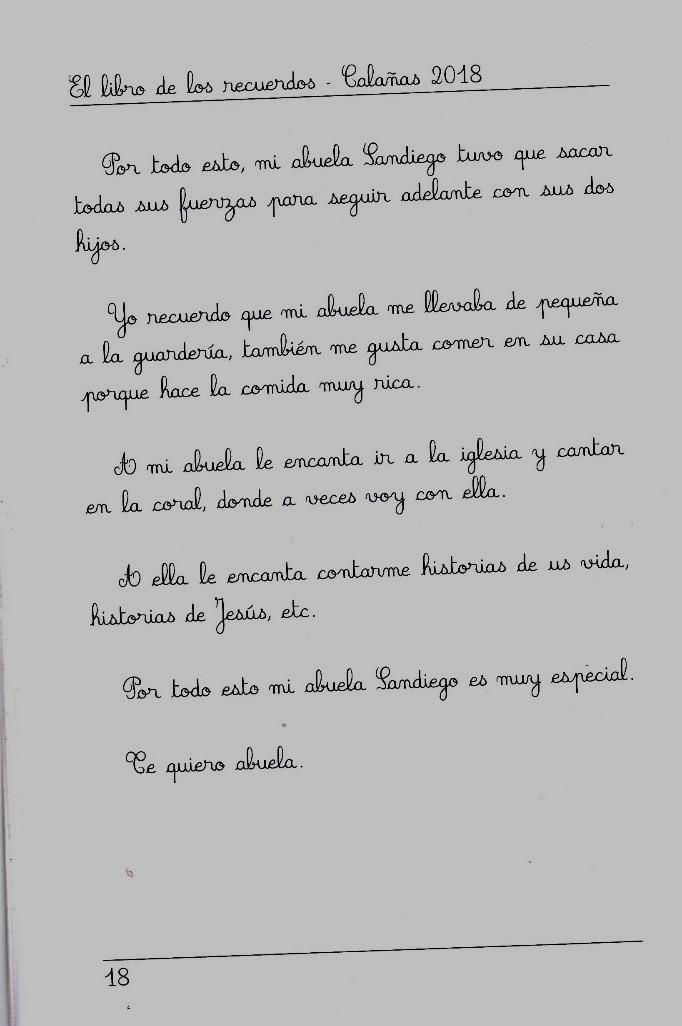 El libro de los recuerdos - Calañas 2018
Por todo esto, mi abuela Sandiego tuvo que sacar
todas sus fuerzas para seguir adelante con sus dos
hijos.
Yo recuerdo que mi abuela me llevaba de pequeña
a la guardería, también me gusta comer en su casa
porque hace la comida muy rica.
A mi abuela le encanta ir a la iglesia y cantar
en la coral, donde a veces voy con ella.
A ella le encanta contarme historias de us vida,
historias de Jesús, etc.
Por todo esto mi abuela Sandiego es muy especial.
Te quiero abuela.
18